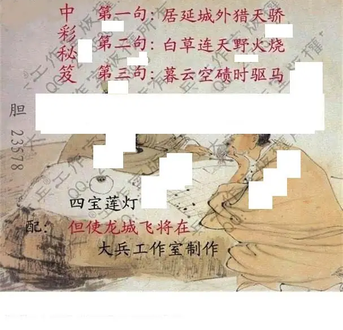 中彩秘笈
第一句：居延城外猎天骄
第二句：白草连天野火烧
第三句：暮云空碛时驱马
胆 23578
四宝莲灯
配：但使龙城飞将在
大兵工作室制作